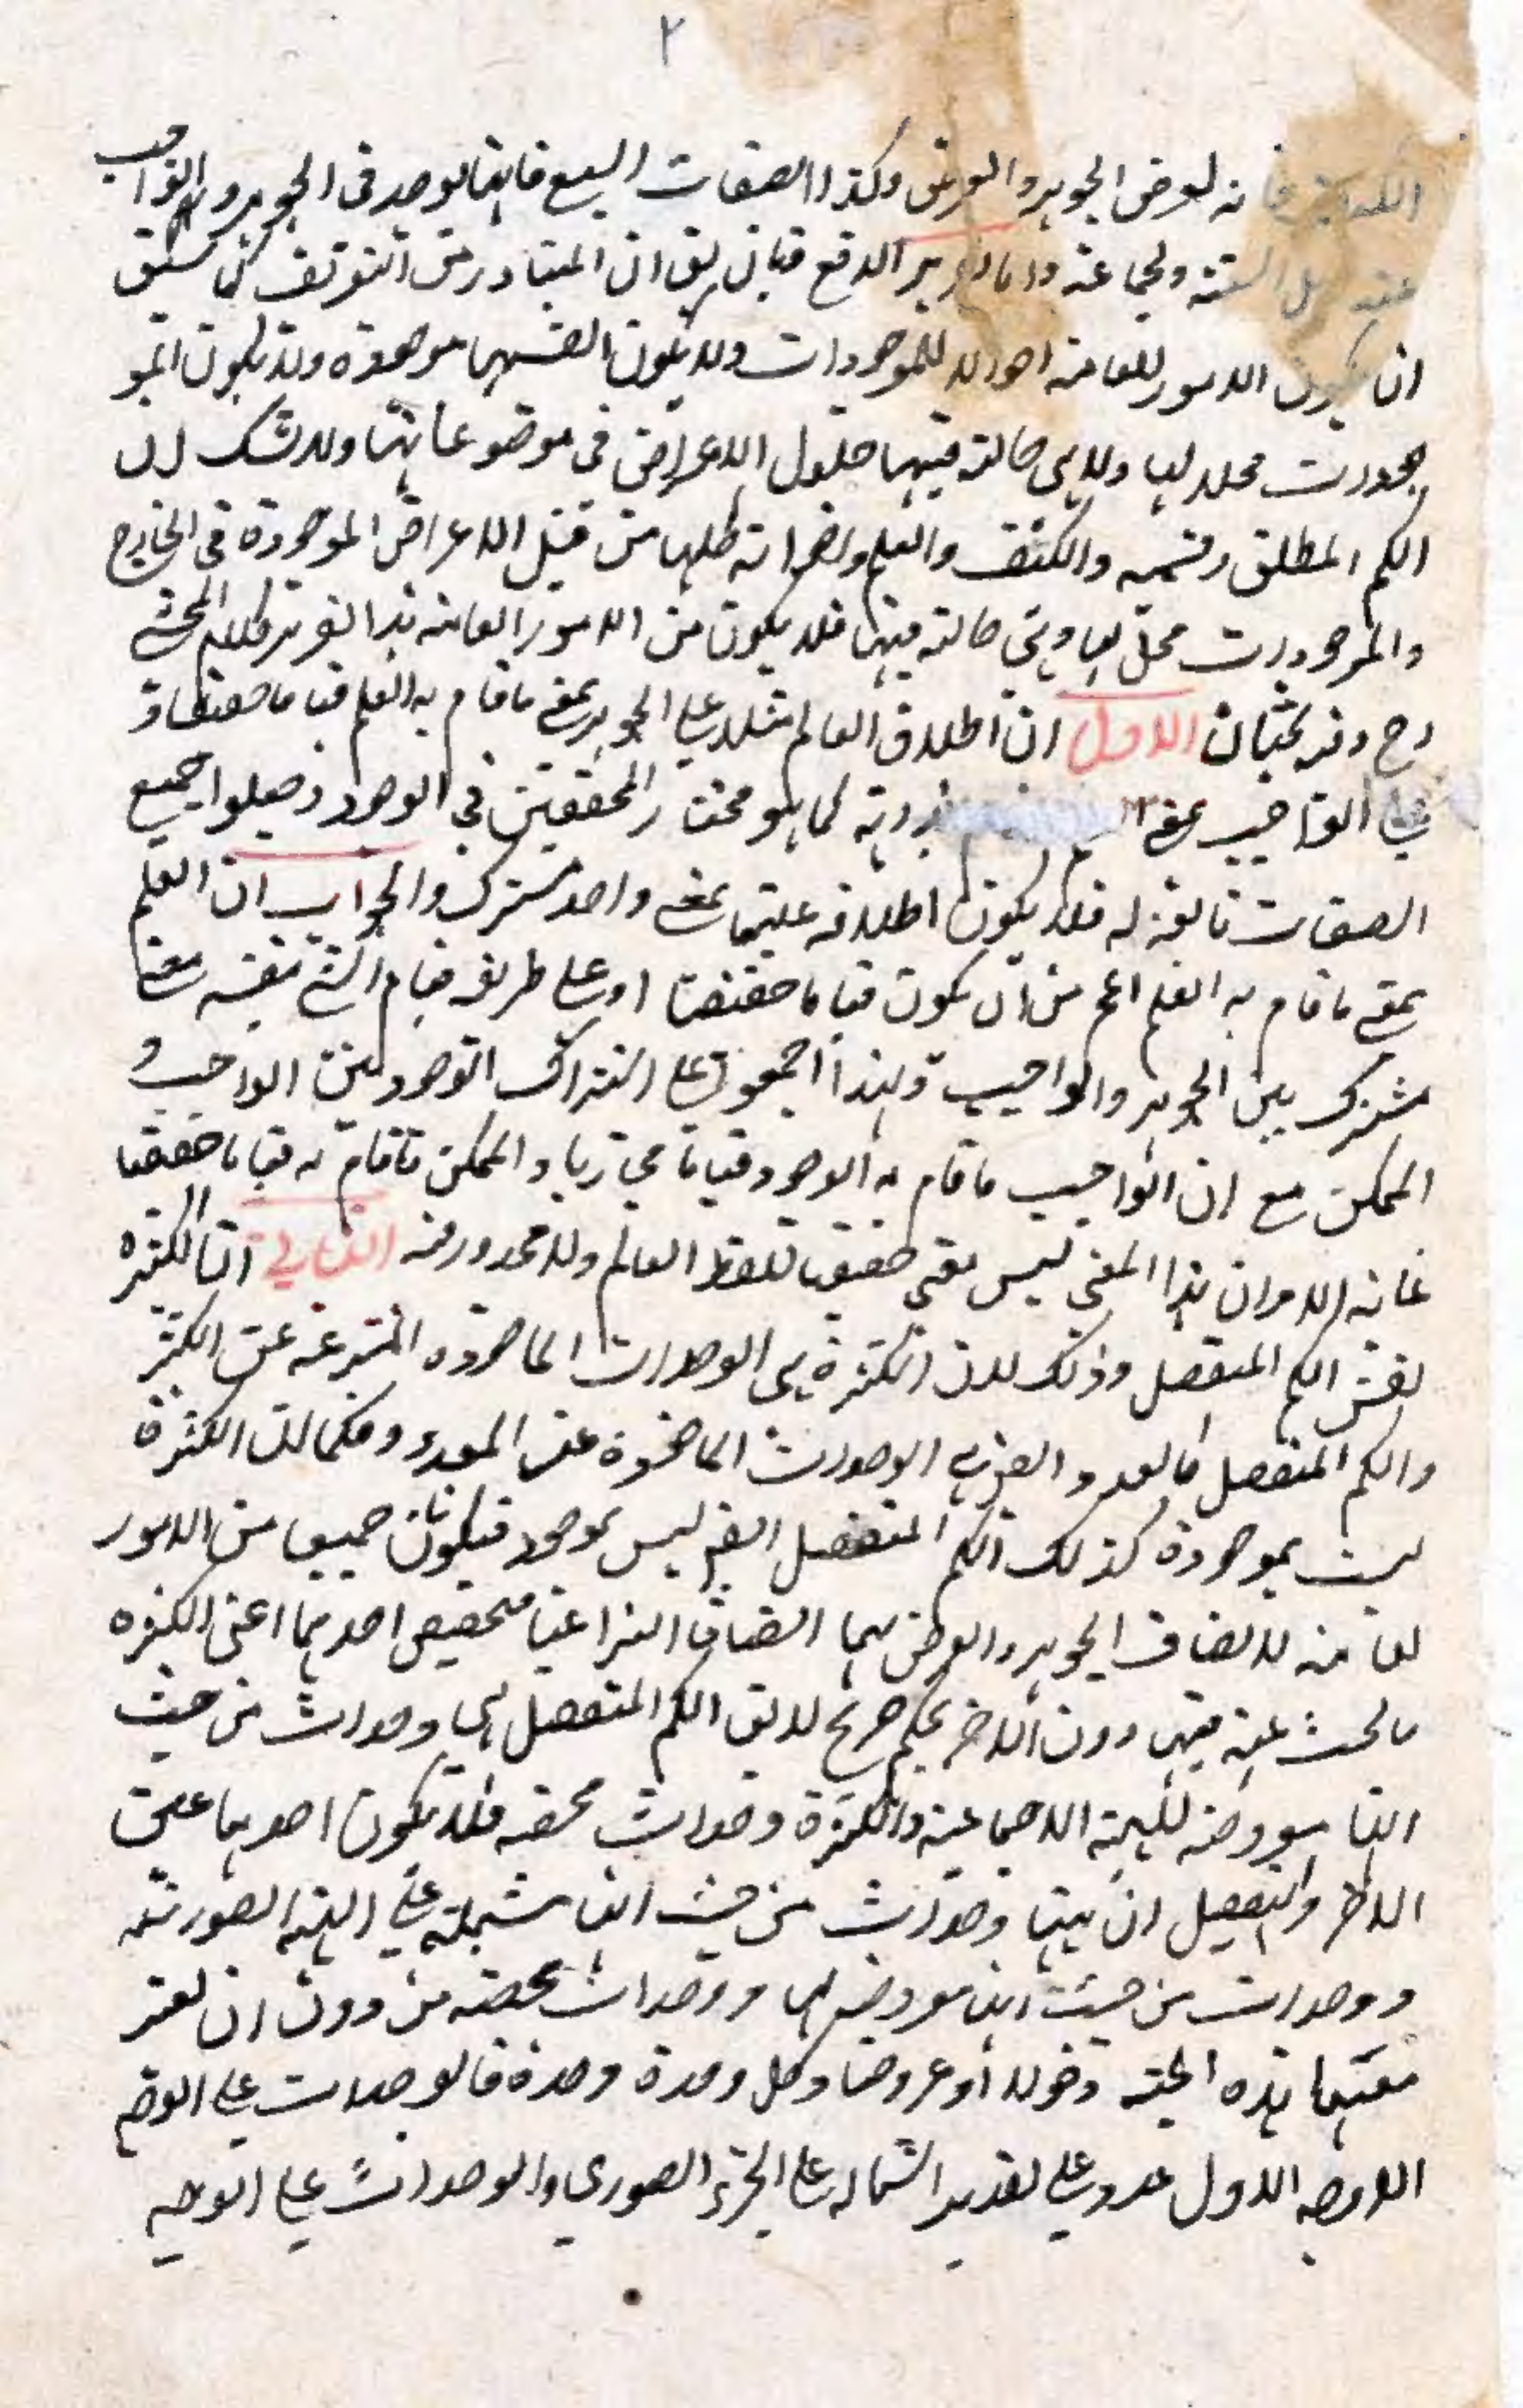 ٢
فانه لعرض الجوهر والعرض وكذا الصفات السبع فانها توجد في الجوهر والواجب
عند اهل السنة والجماعة واما تقرير الدفع فبان يق ان المتبادر من التعريف كما سبق
ان يكون الامور العامة احوالا للموجودات ولا يكون انفسها موجودة ولا يكون المو
جودات محلا لها ولا هي حالة فيها حلول الاعراض في موضوعاتها ولا شك ان
الكم المطلق وقسميه والكيف والعلم واخواته كلها من قبيل الاعراض الموجودة في الخارج
والموجودات محل لها وهي حالة فيها فلا يكون من الامور العامة هذا تقرير كلام المحشي
رح وفيه بحثان الاول ان اطلاق العالم مثلا على الجوهر بمعنى ما قام به العلم قياما حقيقيا و
على الواجب بمعنى كما هو مختار المحققين في الوجود وجعلوا جميع
الصفات تابعة له فلا يكون اطلاقه عليهما بمعنى واحد مشترك والجواب ان العلم
بمعنى ما قام به العلم اعم من ان يكون قياما حقيقيا او على طريق قيام الشئ بنفسه معنى
مشترك بين الجوهر والواجب ولهذا اجمعوا على اشتراك الوجود بين الواجب و
الممكن مع ان الواجب ما قام به الوجود قياما مجازيا والممكن ما قام به قياما حقيقيا
غاية الامر ان هذا المعنى ليس معنى حقيقيا للفظ العالم ولا محذور فيه الثاني ان الكثرة
نفس الكم المنفصل وذلك لان الكثرة هي الوحدات الماخوذة المنتزعة عن الكثير
والكم المنفصل كالعدد ايضا هي الوحدات الماخوذة عن المعدود فكما ان الكثرة
ليست بموجودة كذلك الكم المنفصل ايضا ليس بموجود فيكونان جميعا من الامور
العامة لاتصاف الجوهر والعرض بهما اتصافا انتزاعيا فتخصيص احدهما اعني الكثرة
بالبحث عنه فيها دون الاخر تحكم صريح لا يق الكم المنفصل هي وحدات من حيث
انها معروضة للهيئة الاجتماعية والكثرة وحدات محضة فلا يكون احدهما عين
الاخر والتفصيل ان ههنا وحدات من حيث انها مشتملة على الهيئة الصورية
ووحدات من حيث انها معروضة لها ووحدات محضة من دون ان يعتبر
معها هذه الهيئة دخولا او عروضا وكل وحدة وحدة فالوحدات على الوجه
الاوجه الاول عدد على تقدير اشتماله على الجزء الصوري والوحدات على الوجه